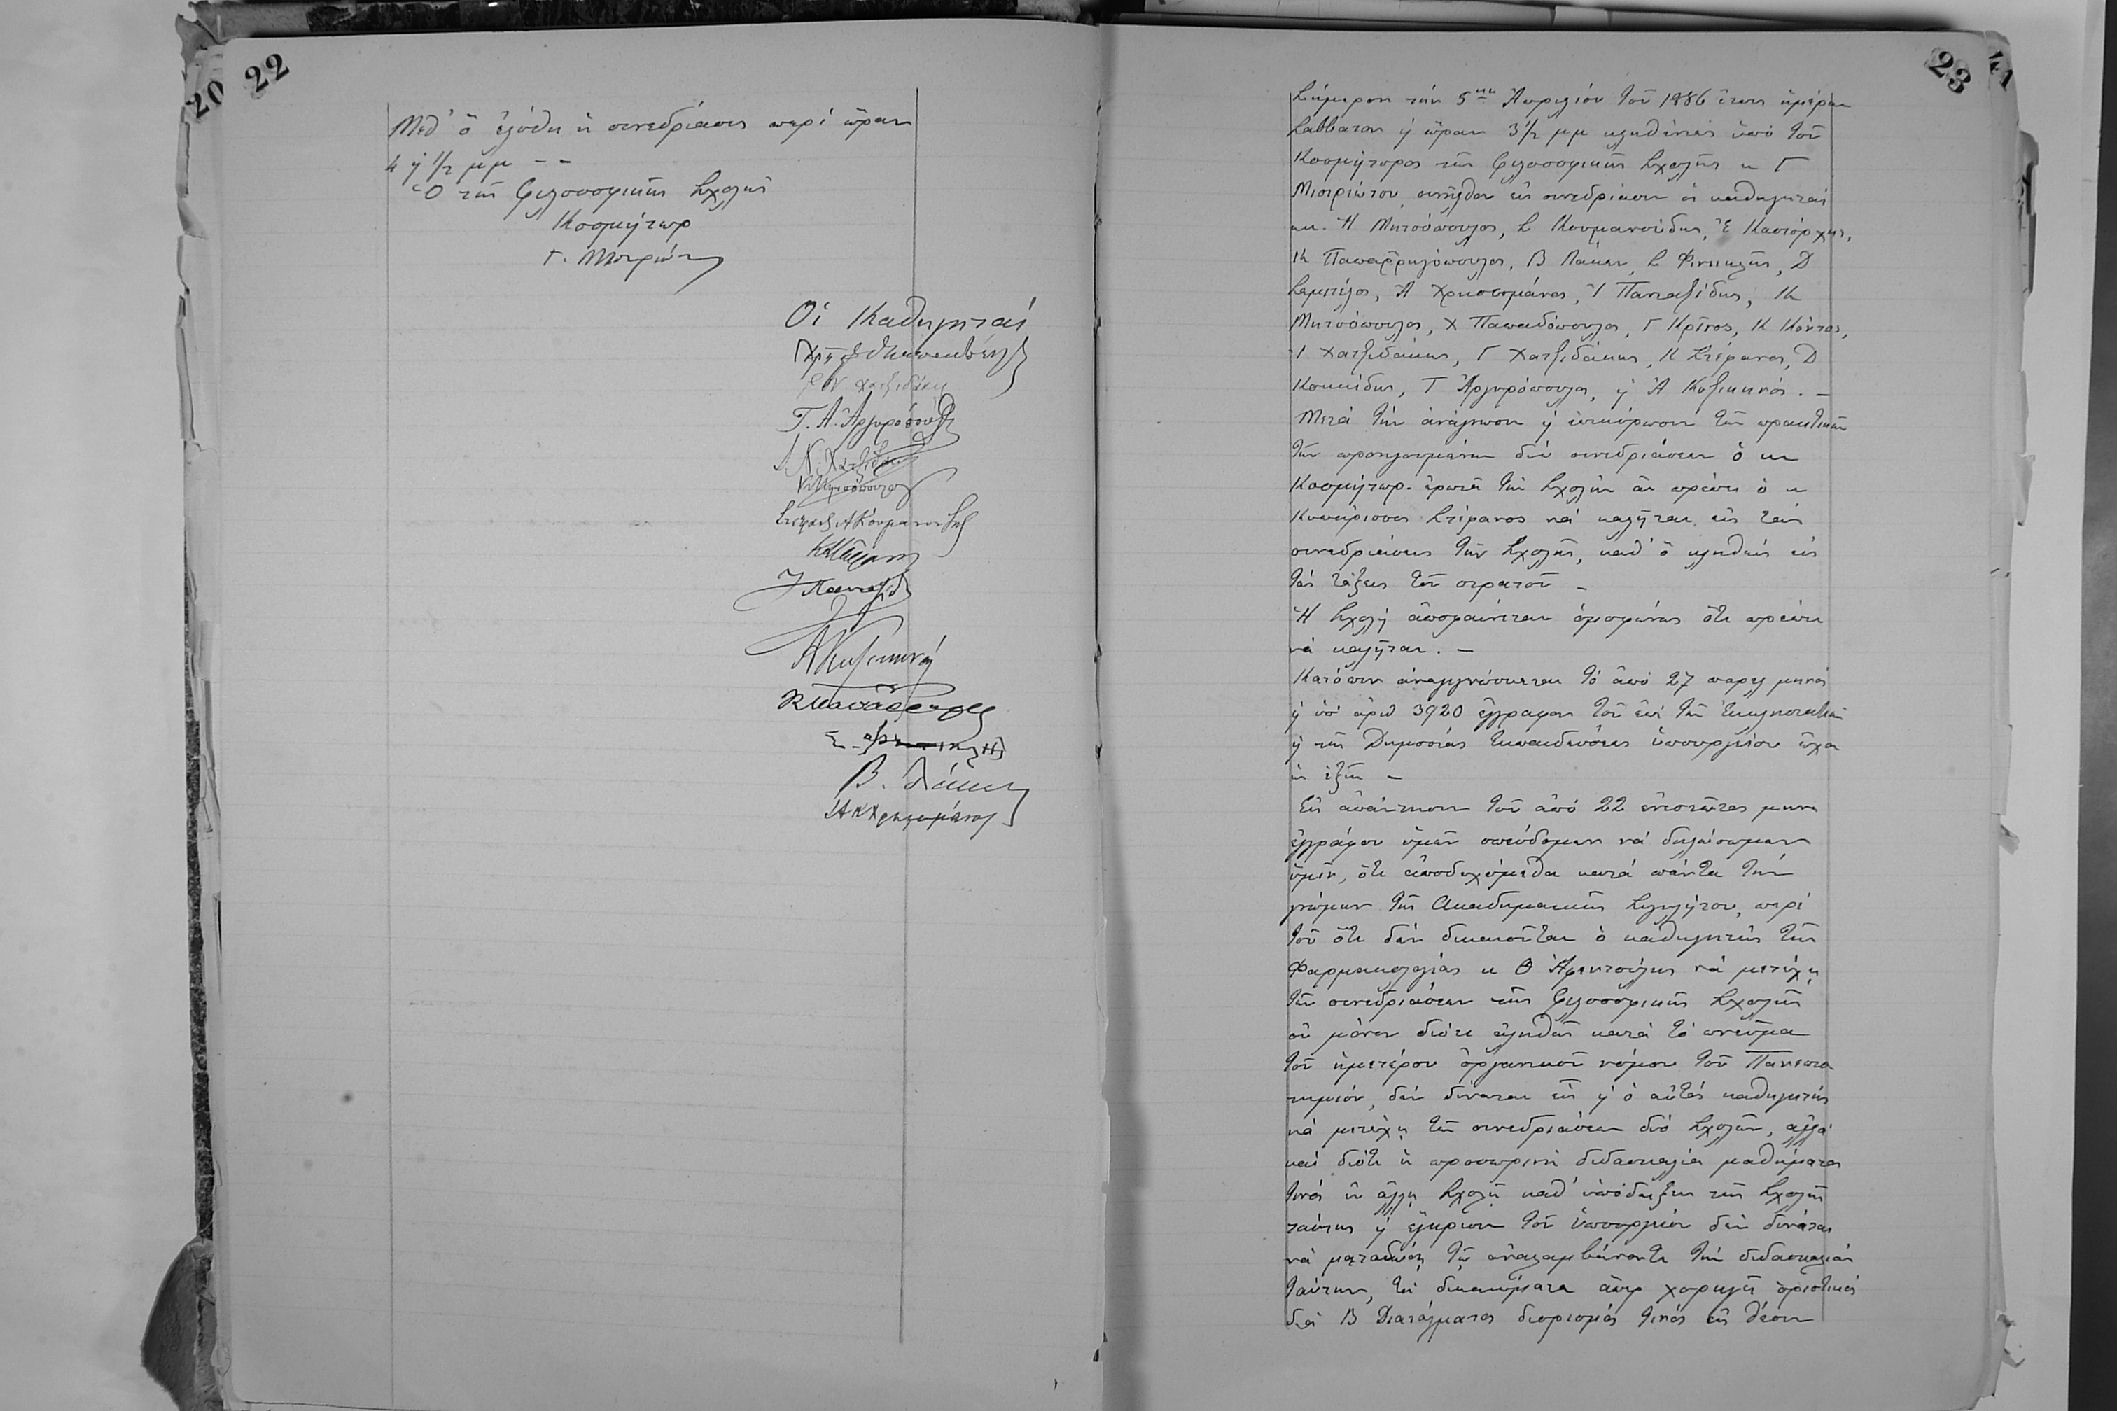 20
22
Μεθ' ὃ ἐλύθη ἡ συνεδρίασις περὶ ὥραν
4 ½ μμ - -
Ὁ τῆς Φιλοσοφικῆς Σχολῆς
Κοσμήτωρ
Γ. Μιστριώτης
Οἱ Καθηγηταὶ
Ι. Ν. Χατζιδάκις
Γ. Α. Ἀργυρόπουλος
Κ. Μητσόπουλος
Στέφανος Α Κουμανούδης
Ι Πανταζίδης
Α Κυζικηνός
Κ Παπαρρηγόπουλος
Β. Λάκων
Α Κ Χρηστομάνος
23
Σήμερον τὴν 5ην Ἀπριλίου τοῦ 1886 ἔτους ἡμέραν
Σάββατον ὥραν 3½ μμ κληθέντες ὑπὸ τοῦ
Κοσμήτορος τῆς Φιλοσοφικῆς Σχολῆς κ Γ
Μιστριώτου, συνῆλθον εἰς συνεδρίασιν οἱ καθηγηταὶ
κκ. Η Μητσόπουλος, Σ Κουμανούδης, Ἐ Καστόρχης,
Κ Παπαρρηγόπουλος, Β Λάκων, Σ Φιντικλῆς, Δ
Σεμιτέλος, Ἀ Χρηστομάνος, Ἰ Πανταζίδης, Κ
Μητσόπουλος, Χ Παπαδόπουλος, Γ Κρῖνος, Κ Κόντος,
Ἰ Χατζιδάκις, Γ Χατζιδάκις, Κ Στέφανος, Δ
Κοκκίδης, Τ Ἀργυρόπουλος, ἡ Ἀ Κυζικηνός. -
Μετὰ τὴν ἀνάγνωσιν ἡ ἐπικύρωσιν τῶν πρακτικῶν
τῆς προηγουμένης συνεδριάσεως ὁ κ
Κοσμήτωρ ἐρωτᾷ τὴν Σχολὴν ἂν πρέπει ὁ κ
Κυπάρισσος Στέφανος νὰ καλῆται εἰς τὰς
συνεδριάσεις τῆς Σχολῆς, καθ' ὃ κληθεὶς εἰς
τὰς τάξεις τοῦ στρατοῦ -
Ἡ Σχολὴ ἀποφαίνεται ὁμοφώνως ὅτι πρέπει
νὰ καλῆται. -
Κατόπιν ἀναγινώσκεται τὸ ἀπὸ 27 παρελ μηνὸς
ἡ ὑπ' ἀριθ 3920 ἔγγραφον τοῦ ἐπὶ τῶν Ἐκκλησιαστικῶν
ἡ τῆς Δημοσίας Ἐκπαιδεύσεως ὑπουργείου ἔχον
ὡς ἑξῆς -
Εἰς ἀπάντησιν τοῦ ἀπὸ 22 ἐνεστῶτος μηνὸς
ἐγγράφου ὑμῶν σπεύδομεν νὰ δηλώσωμεν
ὑμῖν, ὅτι ἀποδεχόμεθα κατὰ πάντα τὴν
γνώμην τῆς Ἀκαδημαϊκῆς Συγκλήτου, περὶ
τοῦ ὅτι δὲν δικαιοῦται ὁ καθηγητὴς τῆς
Φαρμακολογίας κ Θ Ἀφεντούλης νὰ μετέχῃ
τῶν συνεδριάσεων τῆς Φιλοσοφικῆς Σχολῆς
οὐ μόνον διότι ἀληθῶς κατὰ τὸ πνεῦμα
τοῦ ἡμετέρου ὀργανικοῦ νόμου τοῦ Πανεπιστη
τημίου, δὲν δύναται εἷς ἡ ὁ αὐτὸς καθηγητὴς
νὰ μετέχῃ τῶν συνεδριάσεων δύο Σχολῶν, ἀλλὰ
καὶ διότι ἡ προσωρινὴ διδασκαλία μαθήματος
τινὸς ἐν ἄλλῃ Σχολῇ καθ' ὑπόδειξιν τῆς Σχολῆς
ταύτης ἡ ἔγκρισιν τοῦ Ὑπουργείου δὲν δύναται
νὰ μεταδώσῃ τῷ ἀναλαμβάνοντι τὴν διδασκαλίαν
ταύτην, τὰ δικαιώματα ἅπερ χορηγεῖ ὁριστικὸς
διὰ Β Διατάγματος διορισμὸς τινὸς εἰς θέσιν